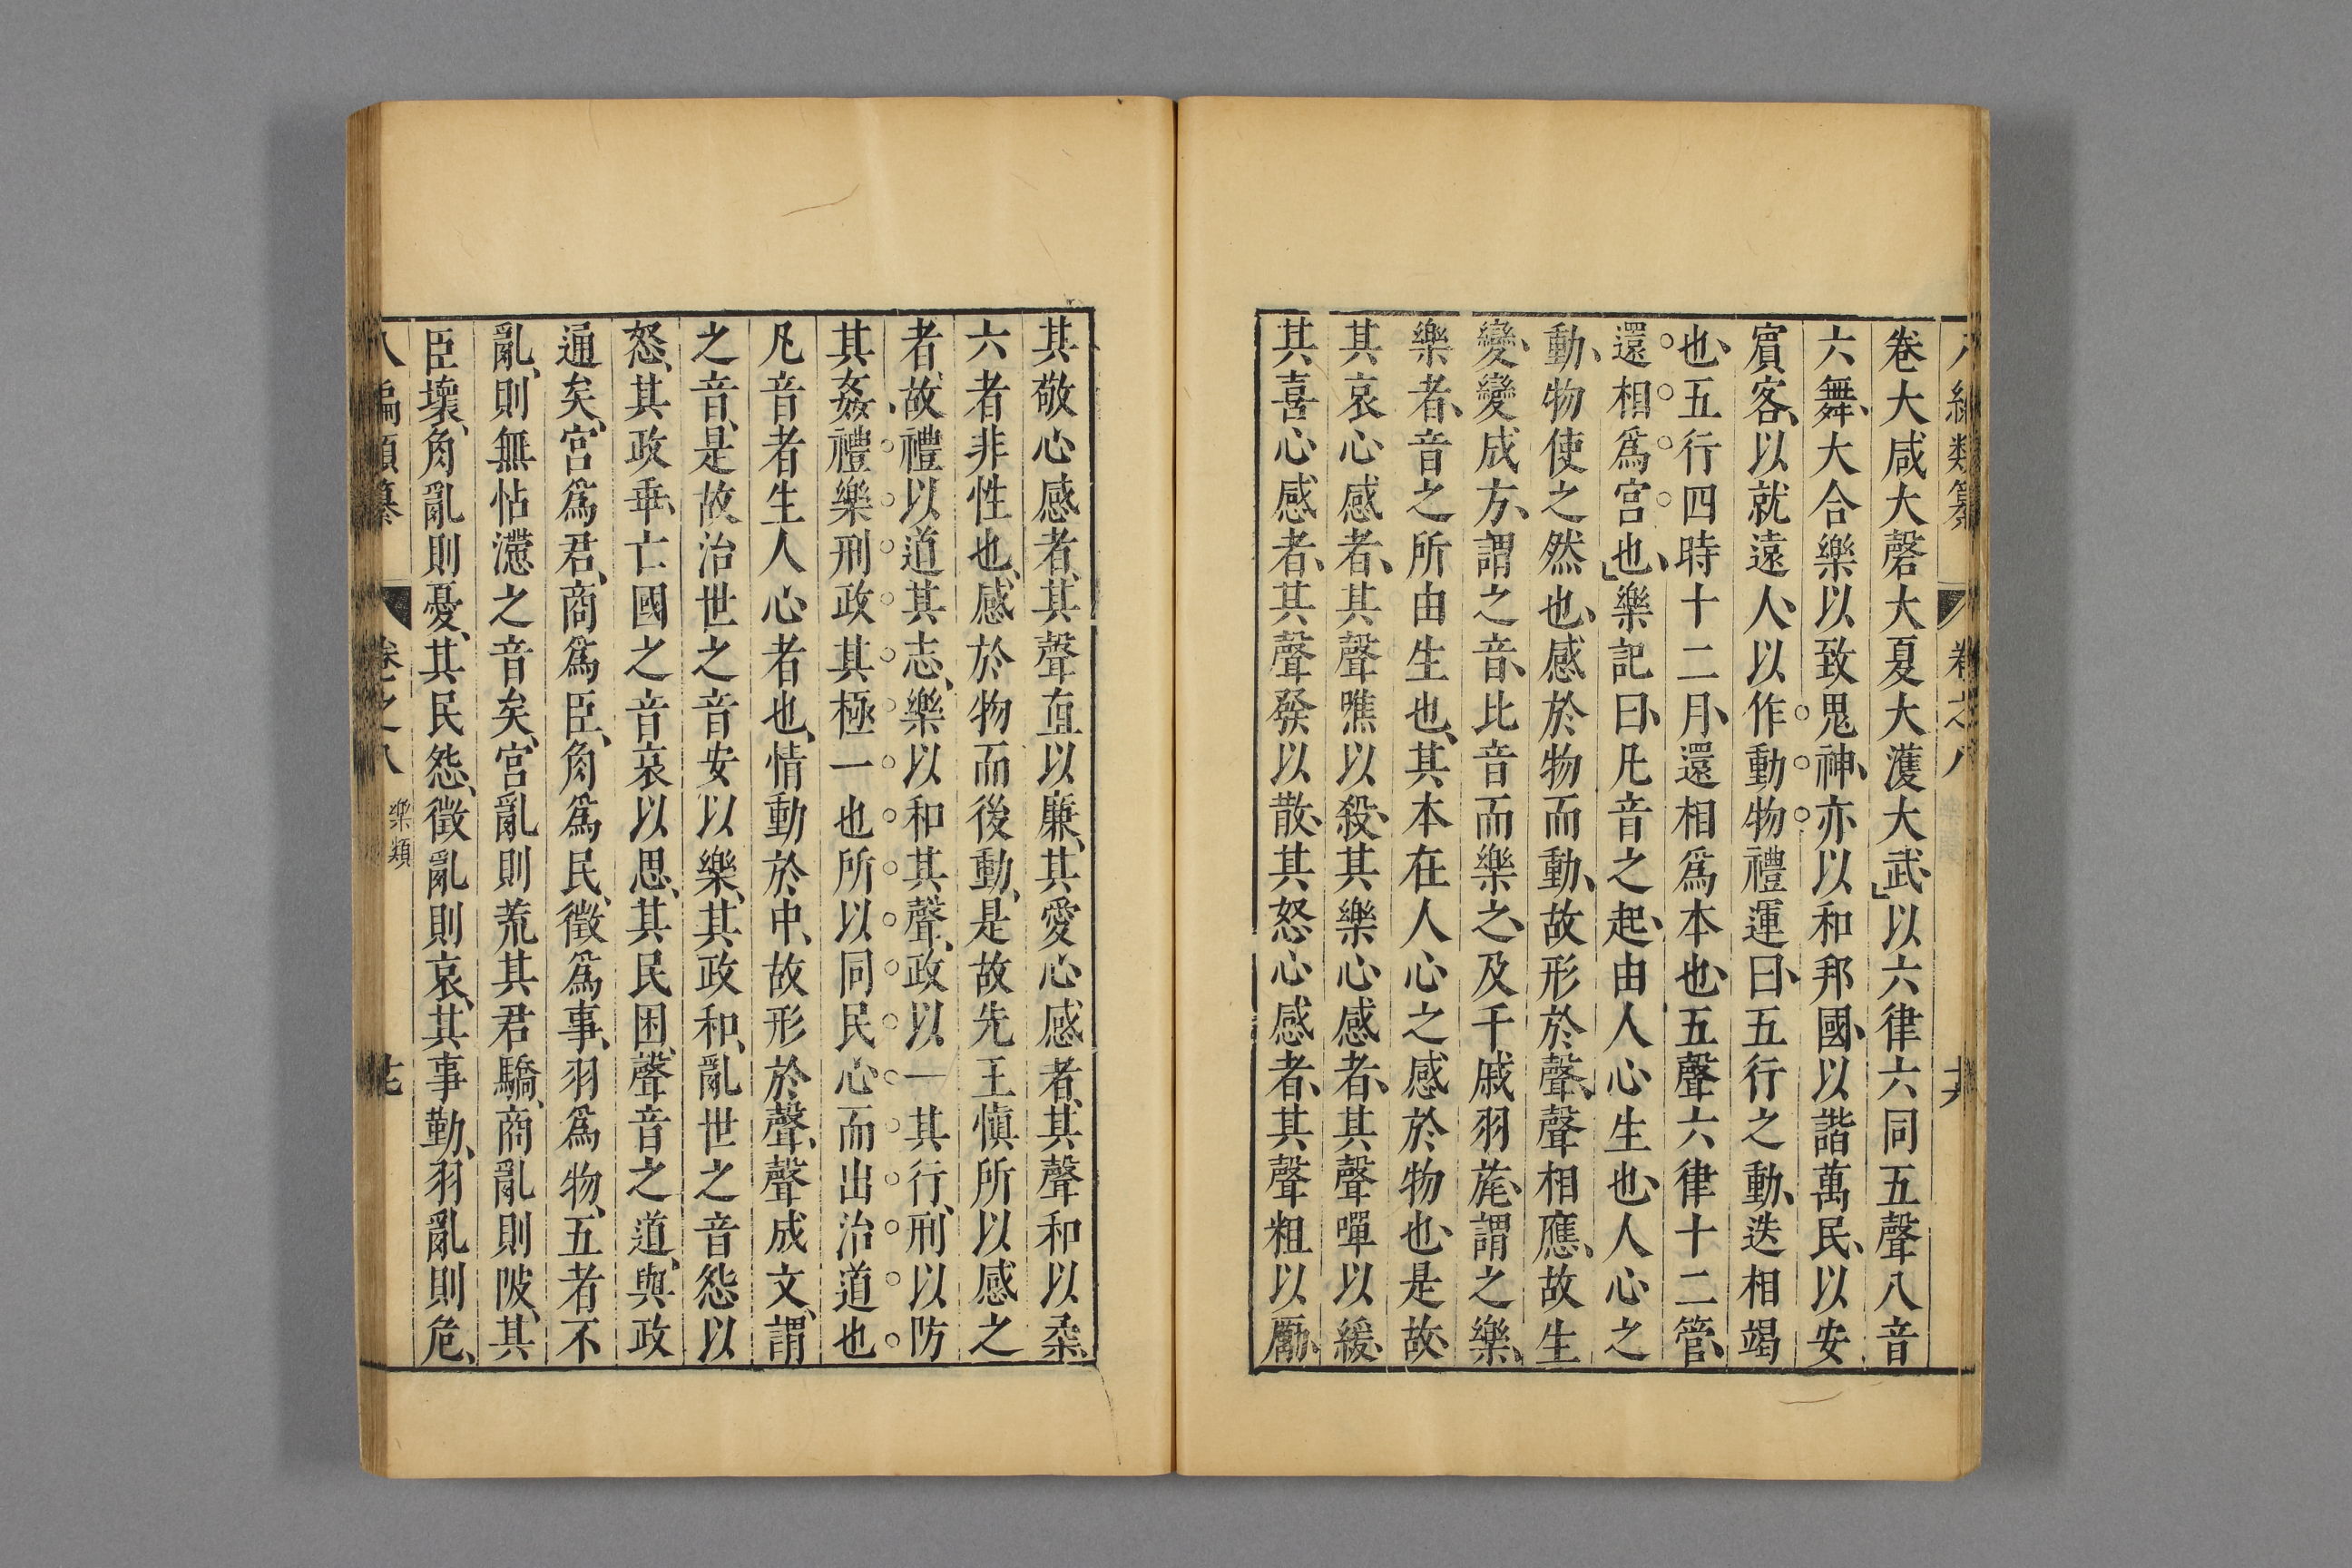 八編類纂 卷之八 十六
卷大咸大磬大夏大濩大武以六律六同五聲八音
六舞、大合樂以致鬼神、亦以和邦國、以諧萬民、以安
賓客、以就遠人、以作動物禮運曰、五行之動、迭相竭
也、五行四時十二月、還相爲本也、五聲六律十二管、
還相爲宫也、樂記曰、凡音之起、由人心生也、人心之
動、物使之然也、感於物而動、故形於聲、聲相應、故生
變、變成方、謂之音、比音而樂之、及干戚羽旄、謂之樂、
樂者、音之所由生也、其本在人心之感於物也、是故、
其哀心感者、其聲噍以殺、其樂心感者、其聲嘽以緩、
其喜心感者、其聲發以散、其怒心感者、其聲粗以厲、
其敬心感者、其聲直以廉、其愛心感者、其聲和以柔、
六者非性也、感於物而後動、是故先王慎所以感之
者、故禮以道其志、樂以和其聲、政以一其行、刑以防
其姦、禮樂刑政其極一也所以同民心而出治道也
凡音者生人心者也、情動於中、故形於聲、聲成文、謂
之音、是故治世之音安以樂、其政和、亂世之音怨以
怒、其政乖、亡國之音哀以思、其民困、聲音之道、與政
通矣、宫爲君、商爲臣、角爲民、徵爲事、羽爲物、五者不
亂、則無怗懘之音矣、宫亂則荒其君驕、商亂則陂、其
臣壞、角亂則憂、其民怨、徵亂則哀、其事勤、羽亂則危、
八編類纂 卷之八 樂類 十七